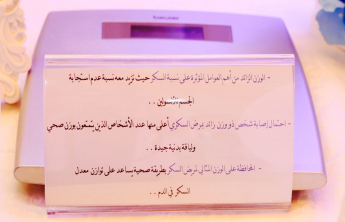 - الوزن الزائد من أهم العوامل المؤثرة على نسبة السكر حيث تزيد معه نسبة عدم استجابة
الجسم للأنسولين . .
- احتمال إصابة شخص ذو وزن زائد بمرض السكري أعلى منها عند الأشخاص الذين يتمتعون بوزن صحي
ولياقة بدنية جيدة . .
- المحافظة على الوزن المثالي لمرض السكر بطريقة صحية يساعد على توازن معدل
السكر في الدم . .